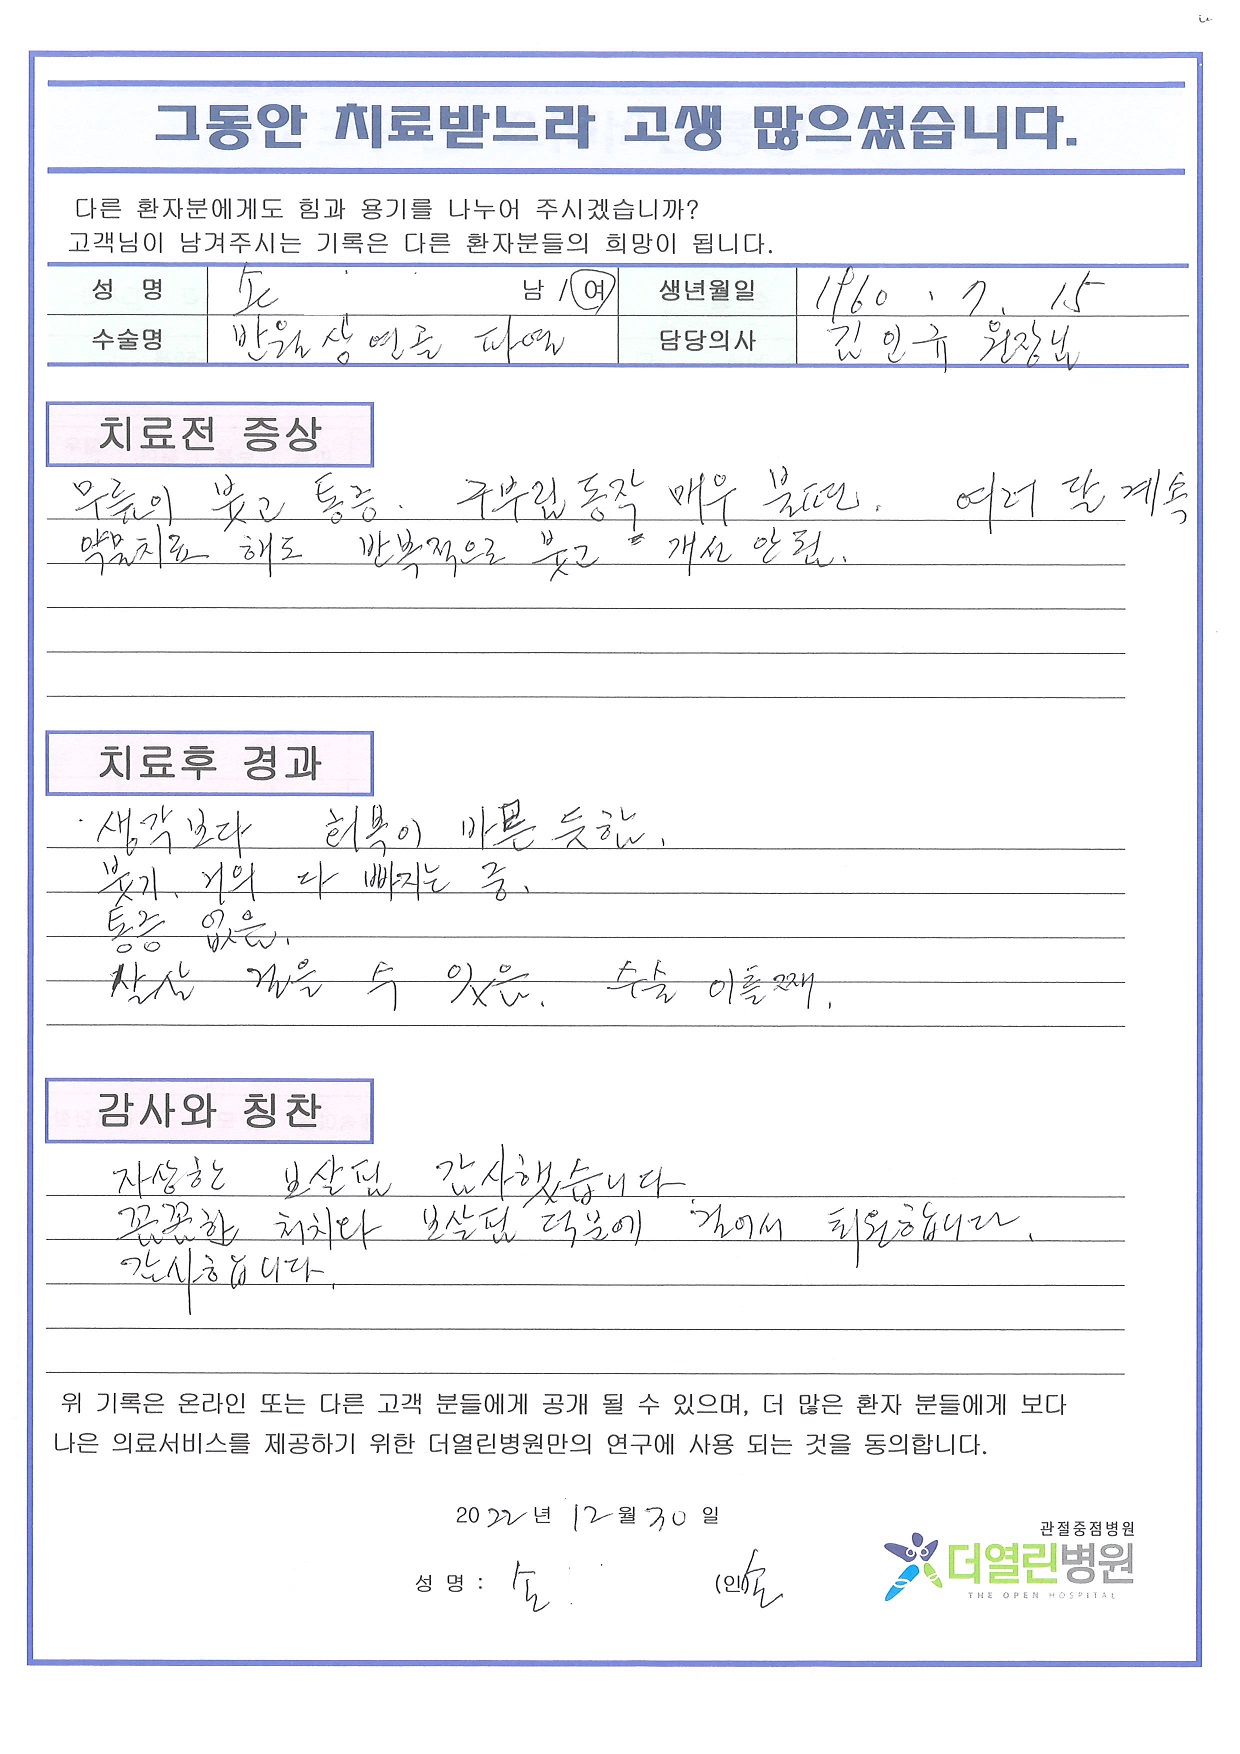 그동안 치료받느라 고생 많으셨습니다.
다른 환자분에게도 힘과 용기를 나누어 주시겠습니까?
고객님이 남겨주시는 기록은 다른 환자분들의 희망이 됩니다.
성 명 손 남 / 여 생년월일 1960 . 7. 15
수술명 반월상 연골 파열 담당의사 김인규 원장님
치료전 증상
무릎이 붓고 통증. 구부림 동작 매우 불편. 여러 달 계속
약물치료 해도 반복적으로 붓고 개선 안 됨.
치료후 경과
생각보다 회복이 빠른 듯함.
붓기. 거의 다 빠지는 중.
통증 없음.
살살 걸을 수 있음. 수술 이틀째.
감사와 칭찬
자상한 보살핌 감사했습니다.
꼼꼼한 처치와 보살핌 덕분에 걸어서 퇴원합니다.
감사합니다.
위 기록은 온라인 또는 다른 고객 분들에게 공개 될 수 있으며, 더 많은 환자 분들에게 보다
나은 의료서비스를 제공하기 위한 더열린병원만의 연구에 사용 되는 것을 동의합니다.
2022년 12월 30일
관절중점병원
더열린병원
THE OPEN HOSPITAL
성 명 : 손 (인) 손